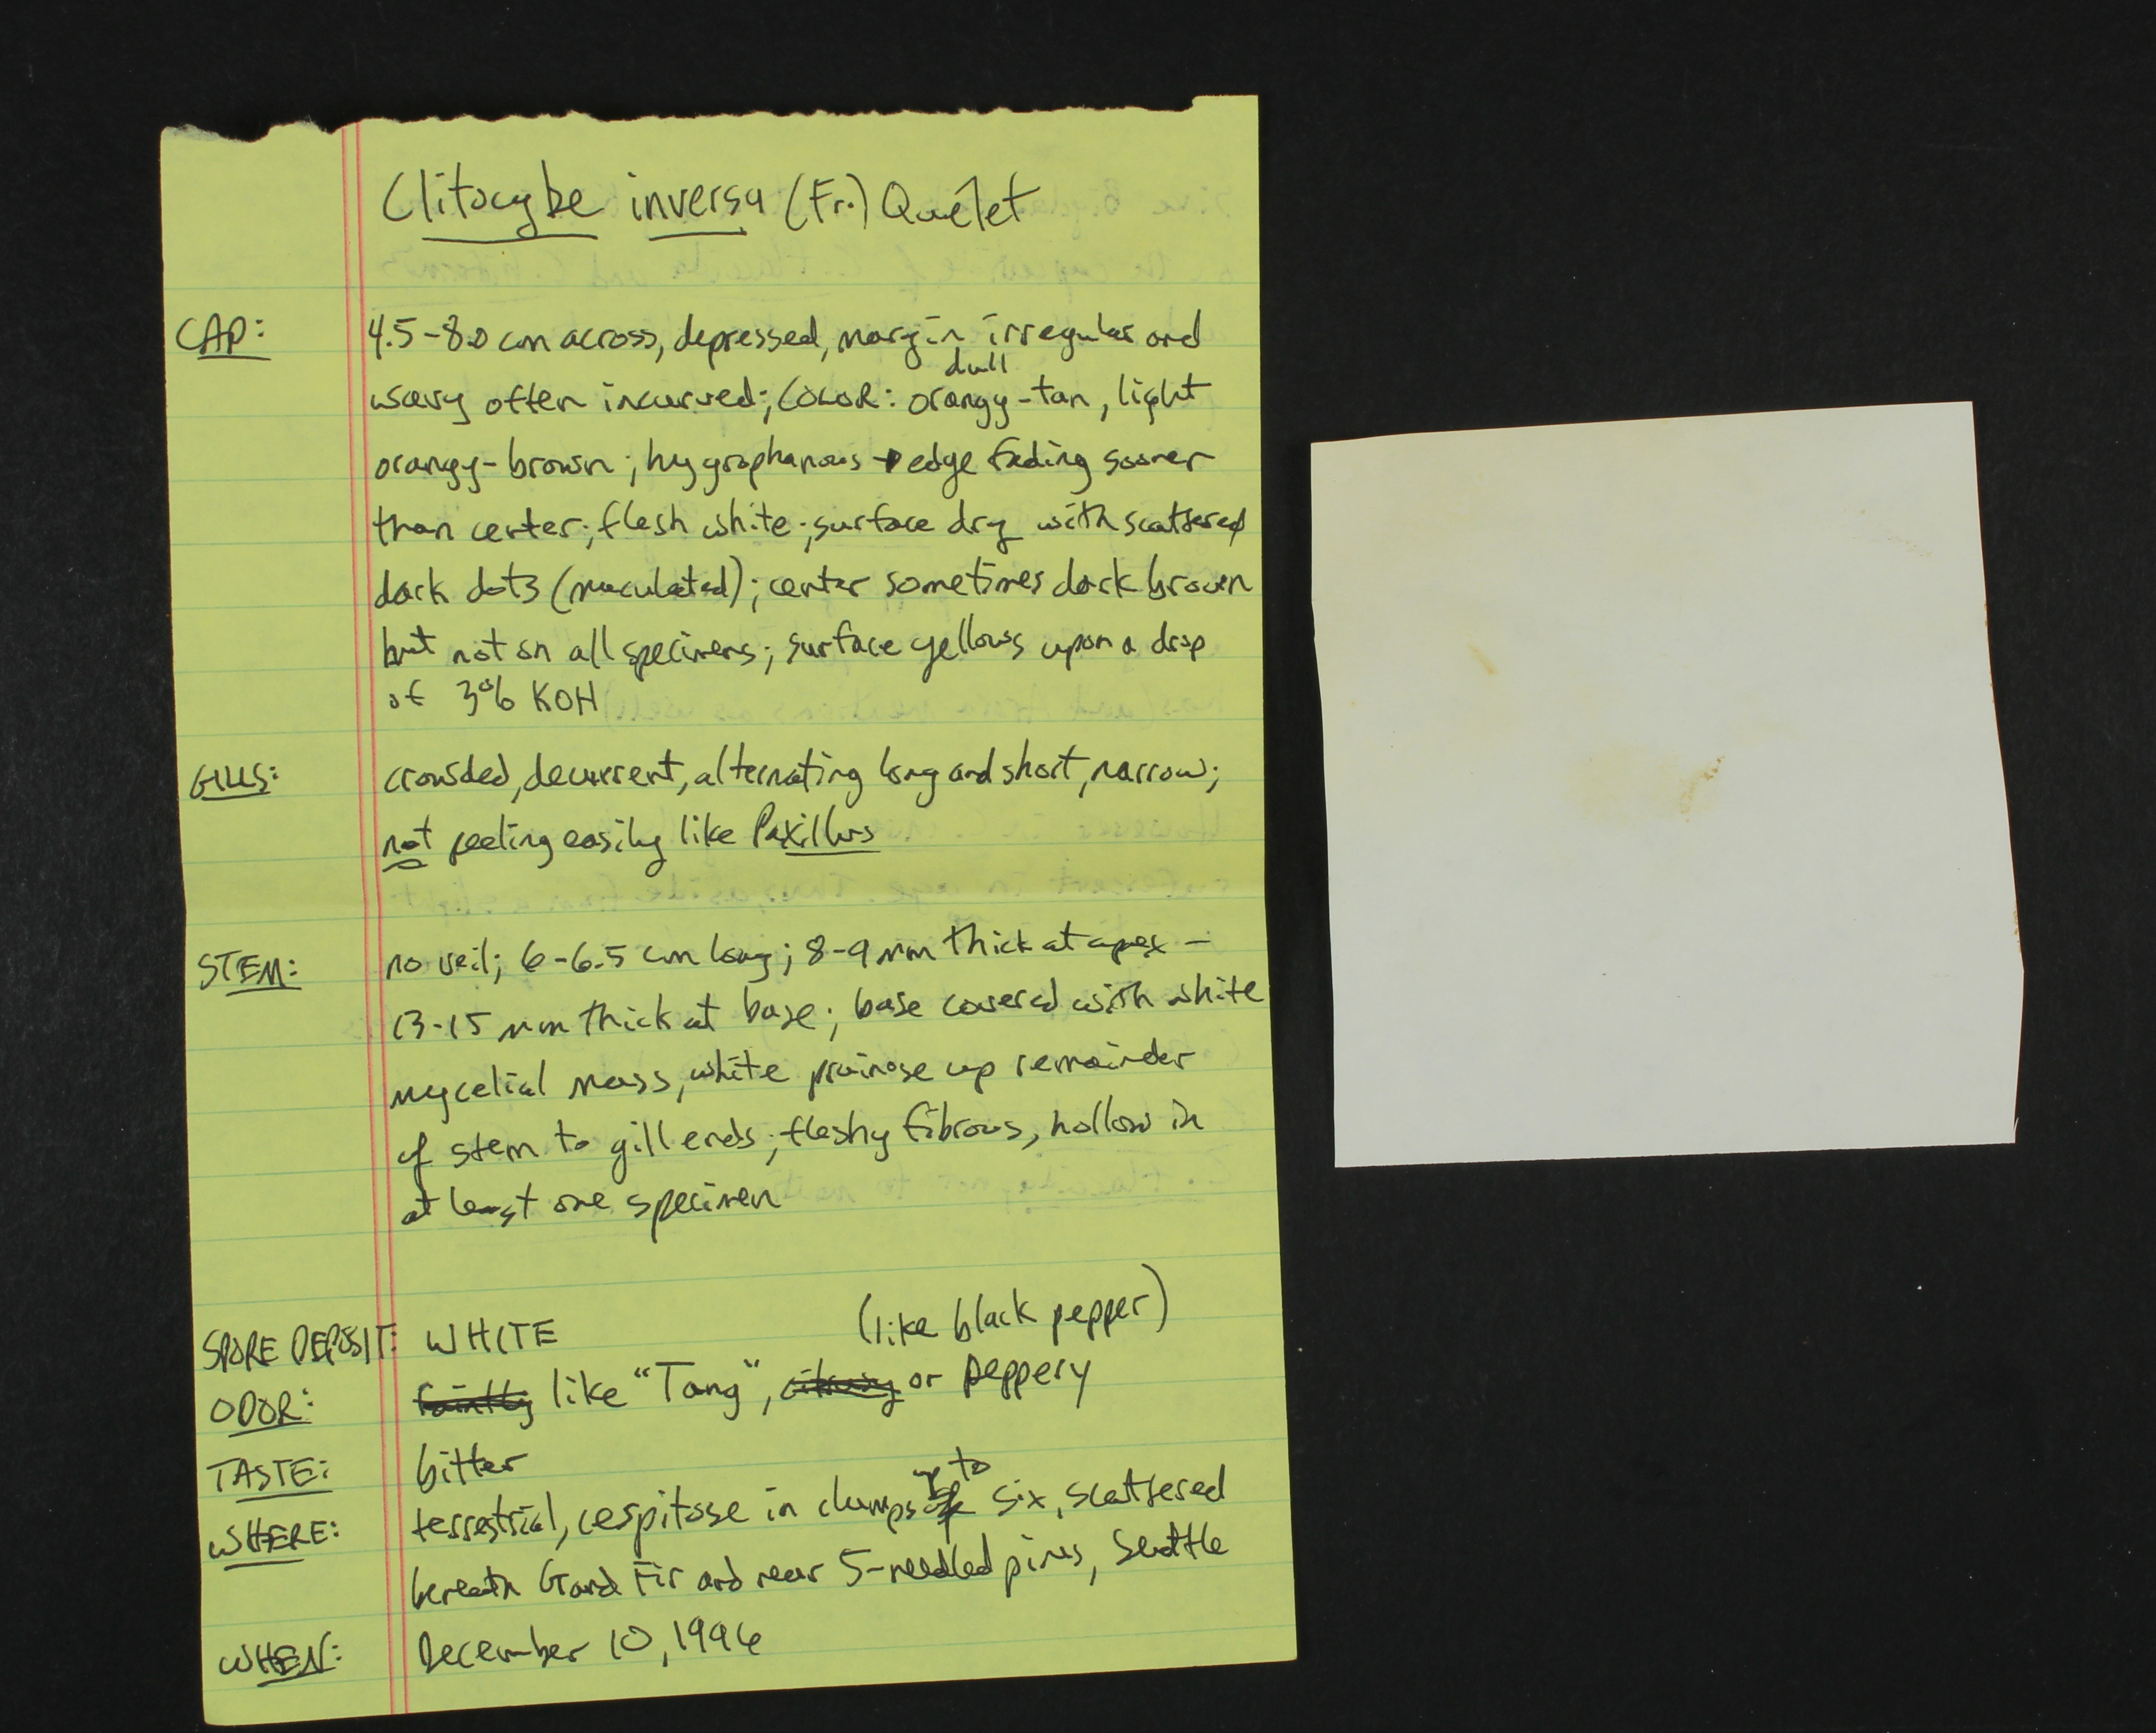 Clitocybe inversa (Fr.) Quélet
CAP: 4.5-8.0 cm across, depressed, margin irregular and
dull
wavy often incurved; COLOR: orangy-tan, light
orangy-brown; hygrophanous → edge fading sooner
than center; flesh white; surface dry with scattered
dark dots (maculated); center sometimes dark brown
but not on all specimens; surface yellows upon a drop
of 3% KOH
GILLS: crowded, decurrent, alternating long and short, narrow;
not peeling easily like Paxillus
STEM: no veil; 6-6.5 cm long; 8-9 mm thick at apex -
13-15 mm thick at base; base covered with white
mycelial mass, white pruinose up remainder
of stem to gill ends; fleshy fibrous, hollow in
at least one specimen
(like black pepper)
SPORE DEPOSIT: WHITE
ODOR: faintly like "Tang", citrusy or peppery
TASTE: bitter
up to
WHERE: terrestrial, cespitose in clumps of six, scattered
beneath Grand Fir and near 5-needled pines, Seattle
WHEN: December 10, 1996